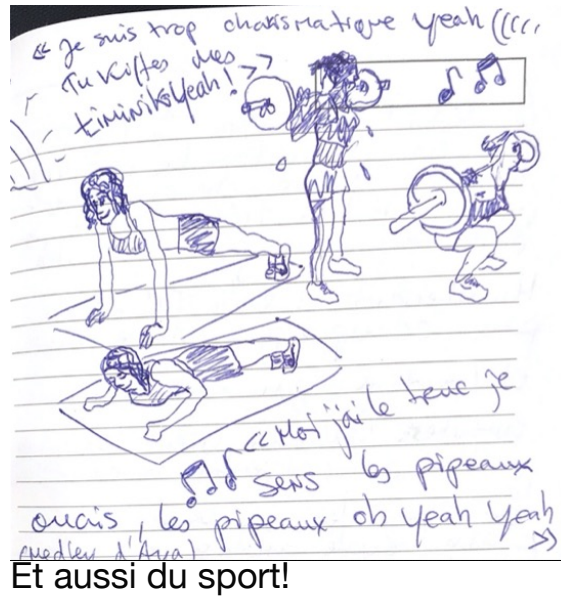 « Je suis trop charismatique yeah ((((,
Tu kiffes mes
Yeah! »
« Moi j'ai le truc je
sens les pipeaux
ouais, les pipeaux oh yeah yeah
»
(medley d'Aya)
Et aussi du sport!